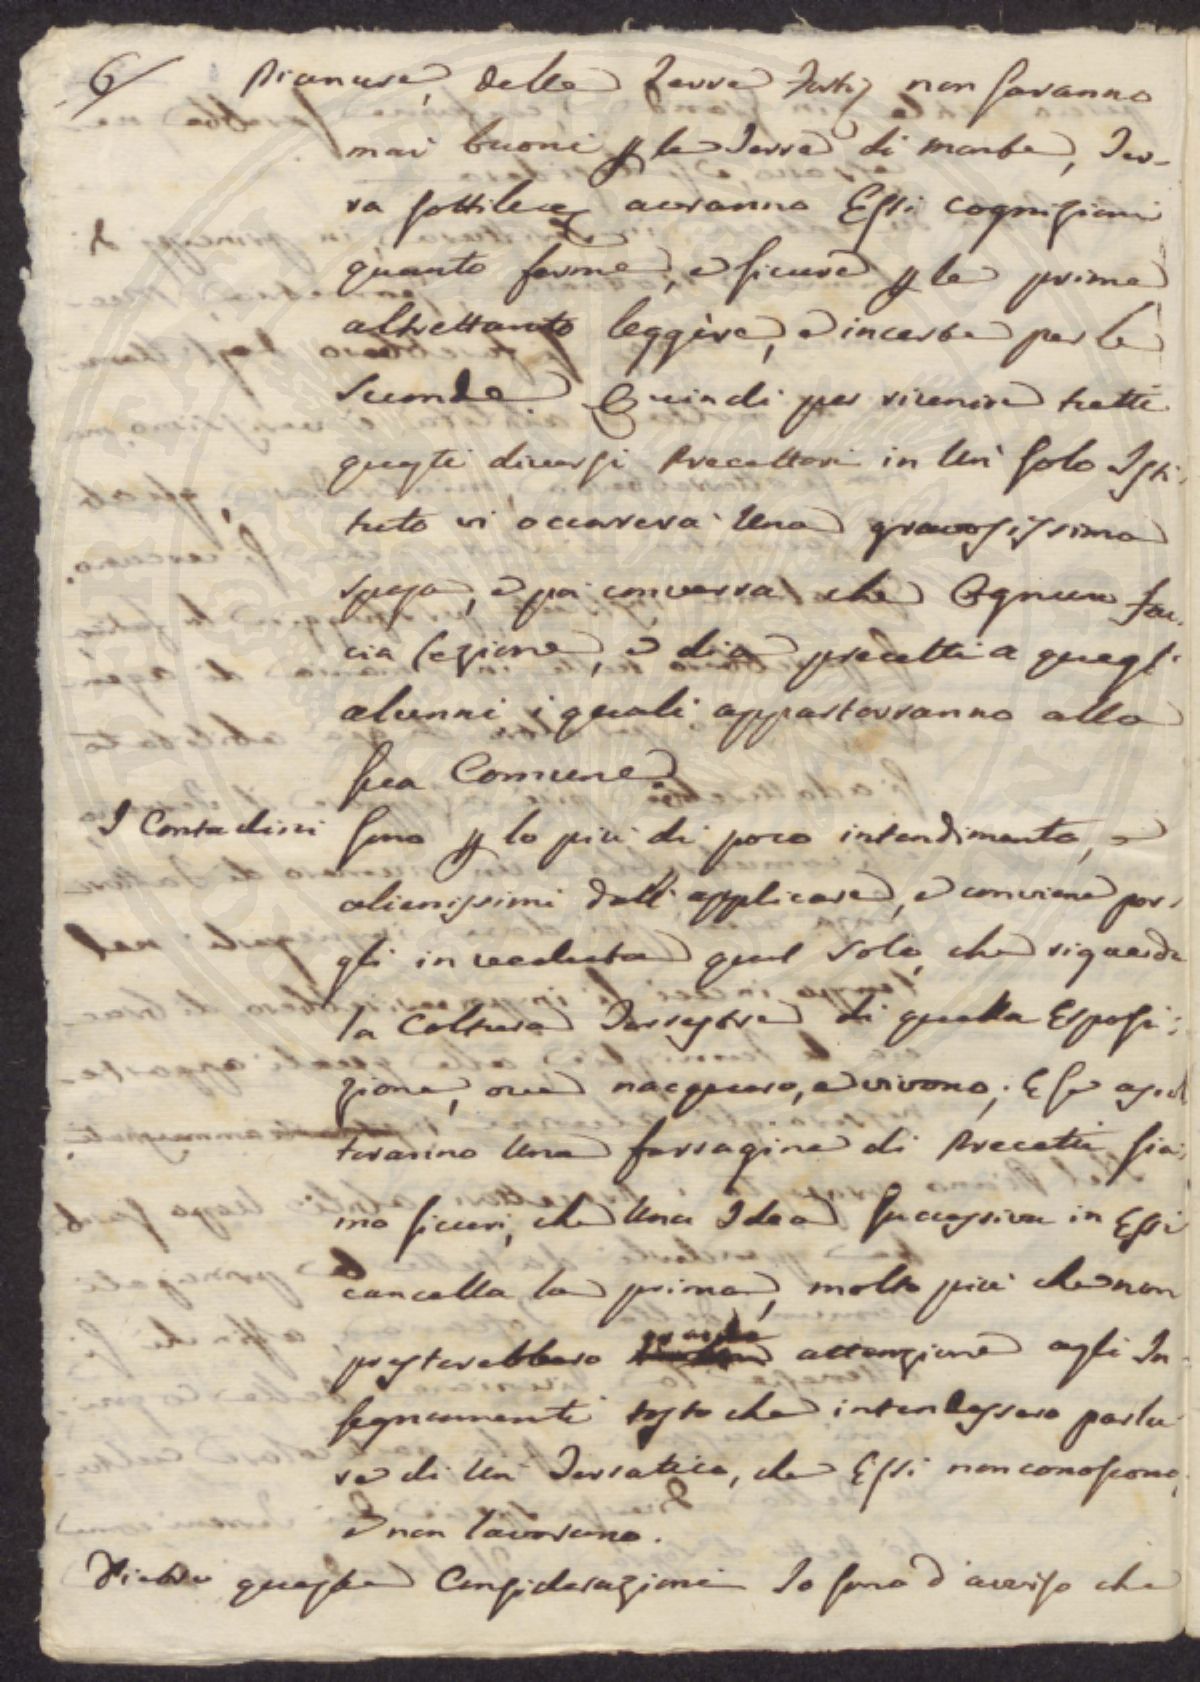 6/ Pianure, delle Terre forti, non saranno
mai buoni p le Terre di monte, Ter-
ra sottile, e averanno Essi cognizioni
quanto ferme, e sicure p le prime
altrettanto leggère, e incerte per le
seconde. Quindi per riunire tutti
questi diversi Precettori in Un' solo Isti-
tuto vi occorerà Una gravosissima
spesa, e poi converrà che Ognuno fac-
cia lezione, e dia precetti a quegl'
alunni i quali apparterranno alla
sua Comune.
I Contadini sono p lo più di poco intendimento, e
alienissimi dall' applicare, e conviene por-
gli in veduta quel solo, che riguarda
la Coltura Terrestre di quella Esposi-
zione, ove nacquero, e vivono; E se ascol
teranno Una farragine di Precetti sia-
mo sicuri, che Una Idea successiva in Essi
cancella la prima, molto più che non
presterebbero grande attenzione agli In-
segnamenti tosto che intendessero parla-
re di Un' Terratico, che Essi non conoscono,
e non lavorano.
Dietro queste Considerazioni Io sono d'avviso che